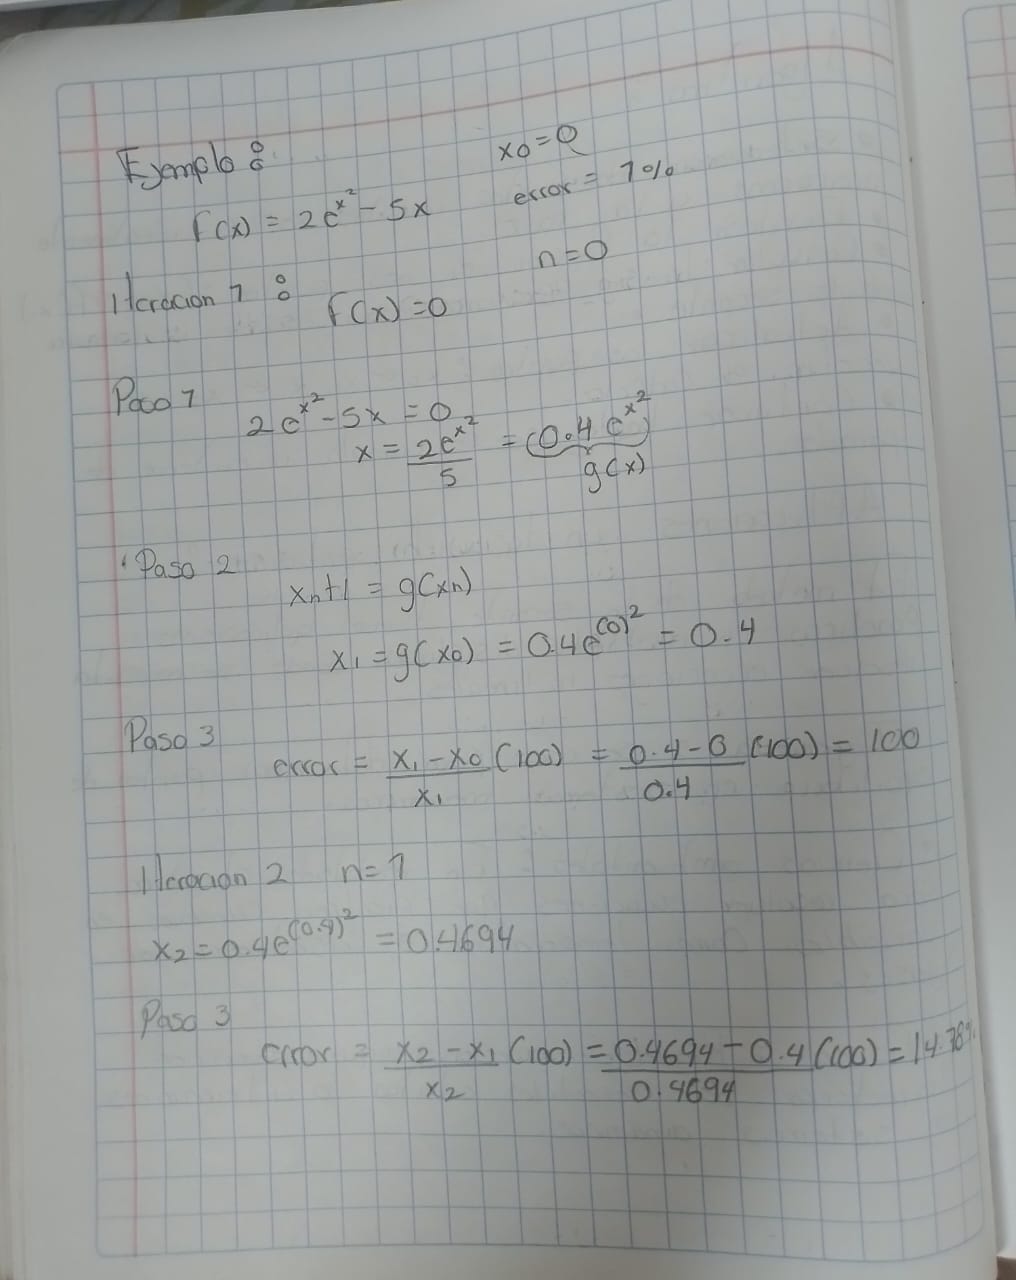 Ejemplo :
x0 = 0
f(x) = 2e^x^2 - 5x
error = 1%
n=0
Iteracion 1 :
f(x) = 0
Paso 1
2e^x^2 - 5x = 0
x = 2e^x^2 / 5 = (0.4 e^x^2)
g(x)
Paso 2
xn+1 = g(xn)
x1 = g(x0) = 0.4e^(0)^2 = 0.4
Paso 3
error = x1 - x0 / x1 (100) = 0.4 - 0 / 0.4 (100) = 100
Iteracion 2 n=1
x2 = 0.4e^(0.4)^2 = 0.4694
Paso 3
error = x2 - x1 / x2 (100) = 0.4694 - 0.4 / 0.4694 (100) = 14.78%